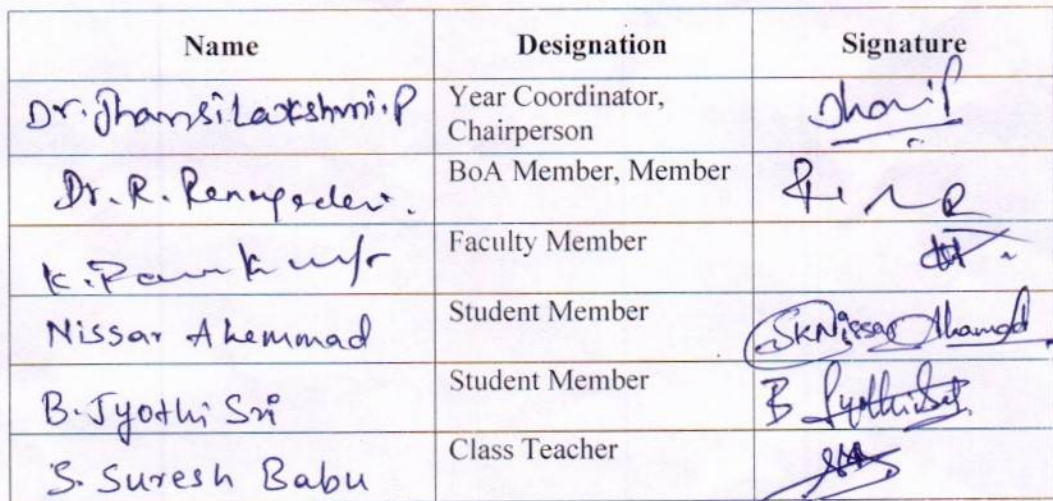 Name Designation Signature
Dr. Jhansi Lakshmi. P Year Coordinator,
Chairperson
Dr. R. Renugadevi. BoA Member, Member
K. Pavan Kumar Faculty Member
Nissar Ahemmad Student Member SK Nissar Ahamad
B. Jyothi Sri Student Member B Jyothi Sri
S. Suresh Babu Class Teacher